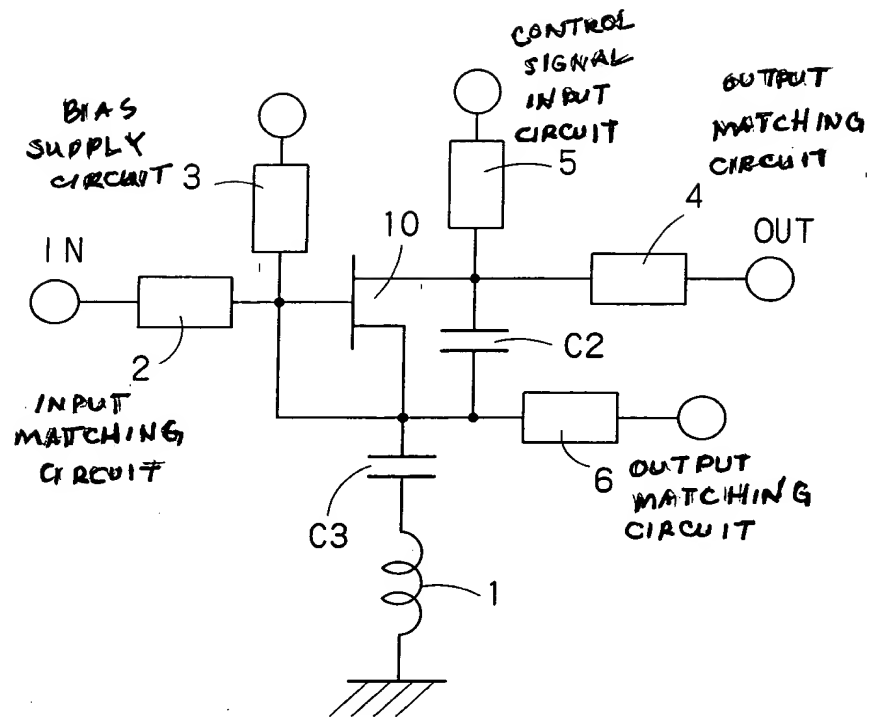 CONTROL
SIGNAL
INPUT
CIRCUIT
5
OUTPUT
MATCHING
CIRCUIT
4
BIAS
SUPPLY
CIRCUIT 3
10
IN
OUT
2
C2
INPUT
MATCHING
CIRCUIT
6 OUTPUT
MATCHING
CIRCUIT
C3
1